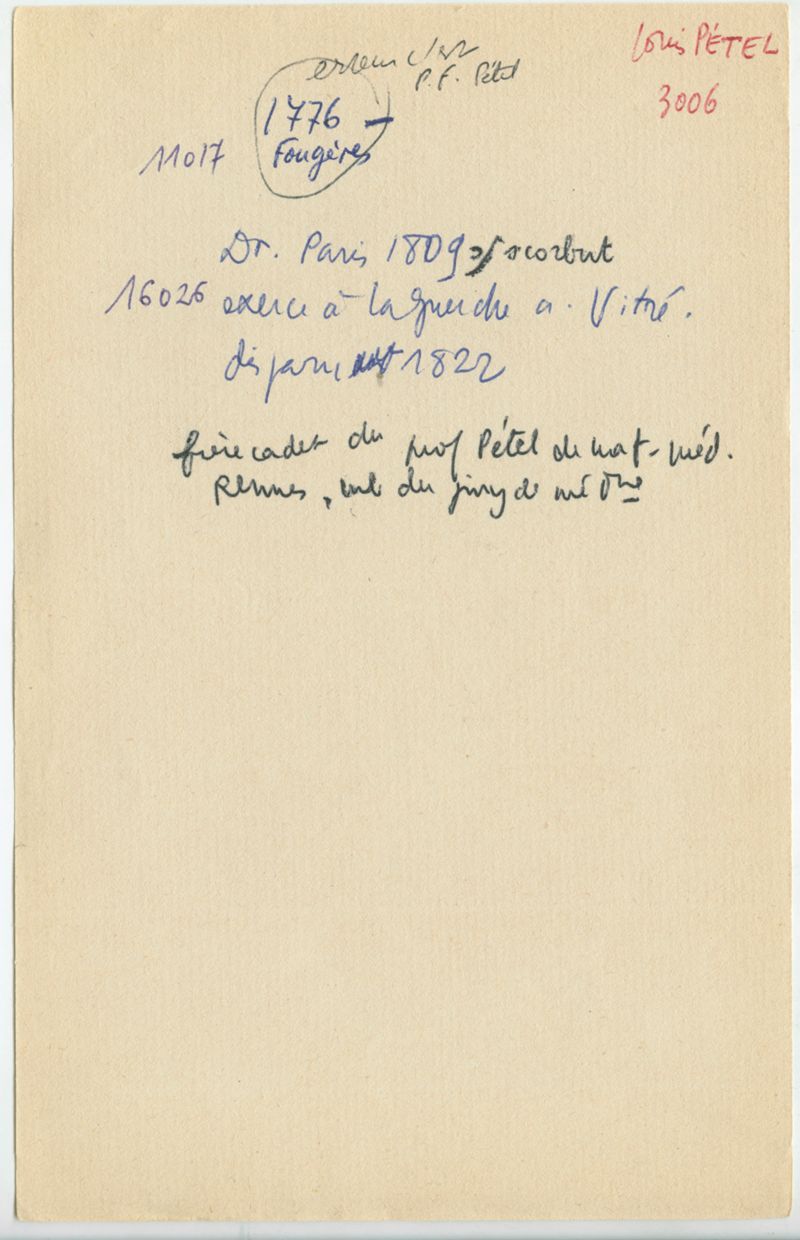 Louis PÉTEL
3006
erreur c'est
P.F. Pétel
1776 –
11017 Fougères
Dr. Paris 1809 s/ scorbut
16026 exerce à la Guerche a. Vitré.
disparu 1822
frère cadet du prof Pétel de nat-méd.
Rennes, mb du jury de méd<sup>ne</sup>